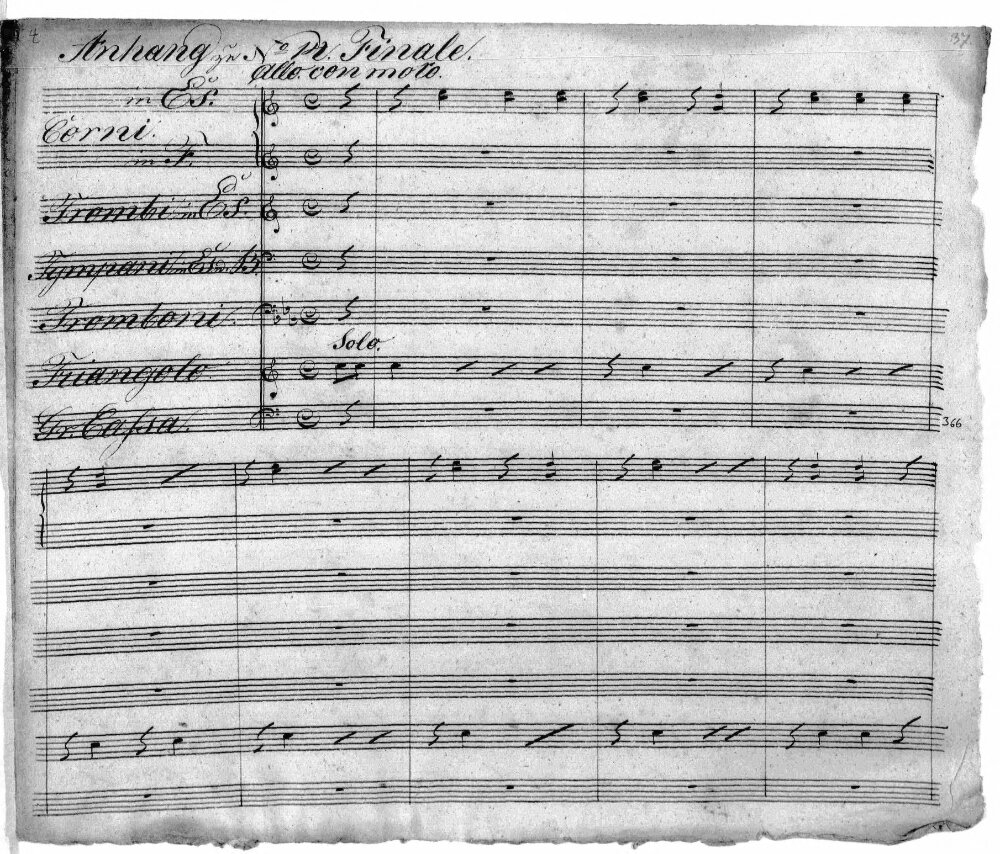 4
37.
Anhang zu No Finale.
Allo. con moto.
in Es.
Corni.
in F.
Trombi in Es.
Tympani in Es B.
Tromboni.
Solo.
Triangolo
Gr. Cassa.
366